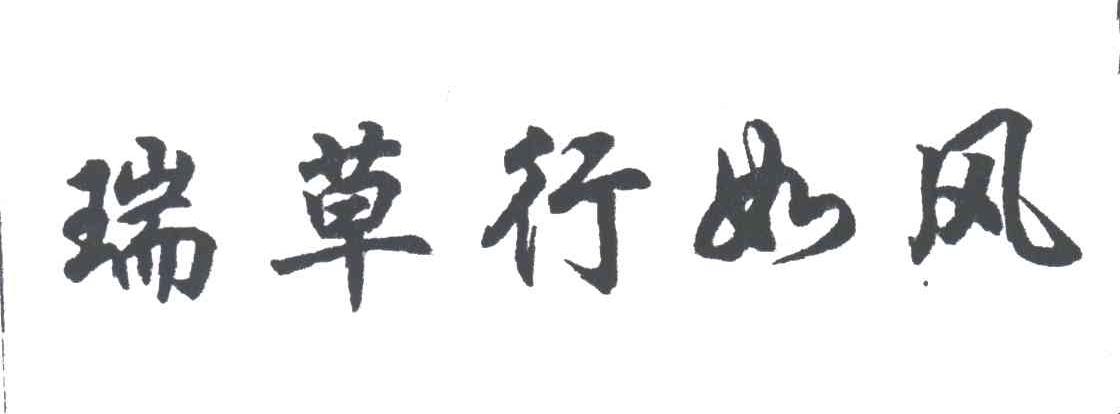 瑞草行如风